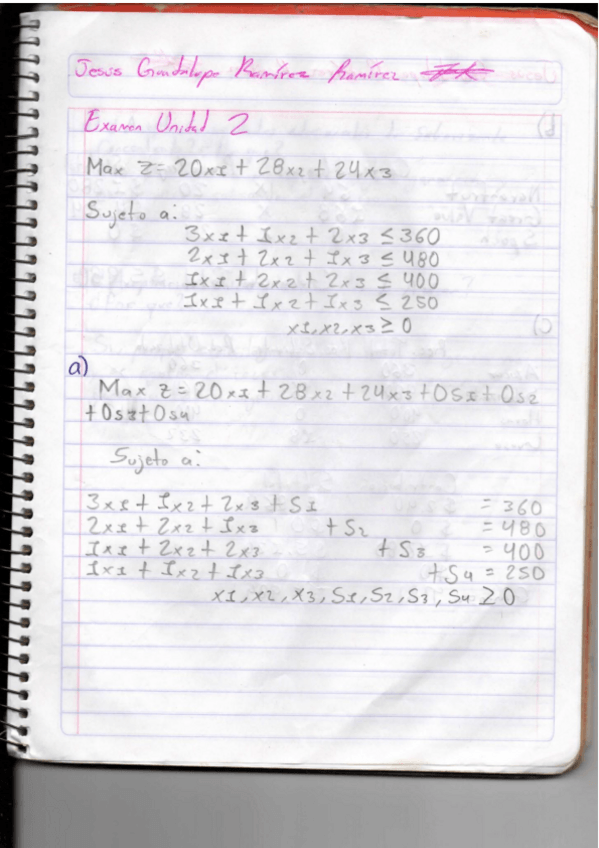 Jesús Guadalupe Ramírez Ramírez
Examen Unidad 2
Max Z = 20x1 + 28x2 + 24x3
Sujeto a:
3x1 + 1x2 + 2x3 ≤ 360
2x1 + 2x2 + 1x3 ≤ 480
1x1 + 2x2 + 2x3 ≤ 400
1x1 + 1x2 + 1x3 ≤ 250
x1, x2, x3 ≥ 0
a)
Max Z = 20x1 + 28x2 + 24x3 + 0S1 + 0S2
+ 0S3 + 0S4
Sujeto a:
3x1 + 1x2 + 2x3 + S1 = 360
2x1 + 2x2 + 1x3 + S2 = 480
1x1 + 2x2 + 2x3 + S3 = 400
1x1 + 1x2 + 1x3 + S4 = 250
x1, x2, x3, S1, S2, S3, S4 ≥ 0